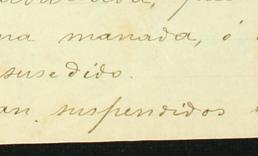 na manada, ó
susedido.
an suspendidos